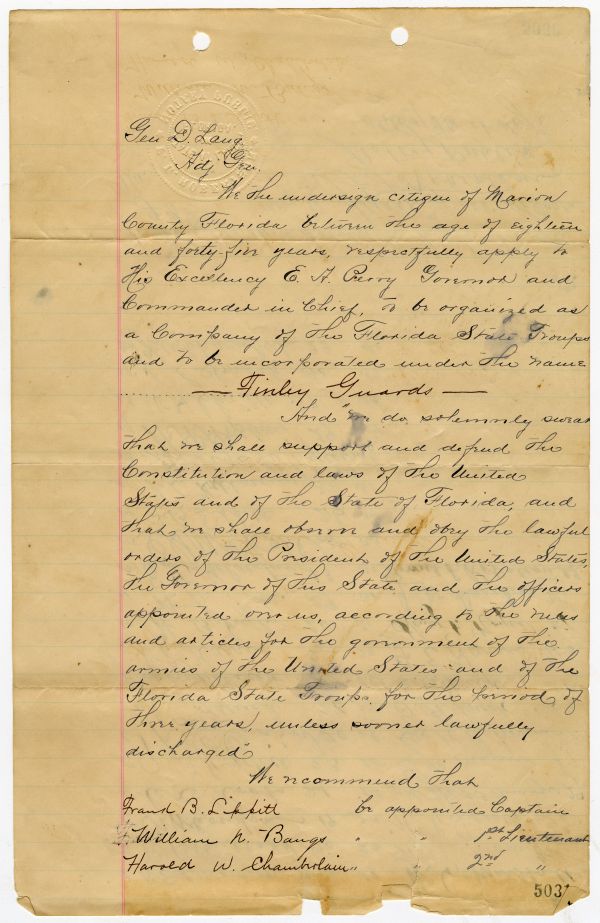 Gen D. Lang
Adj Gen.
We the undersign citizen of Marion
County Florida between the age of eighteen
and forty-five years, respectfully apply to
His Excellency E. A. Perry Governor and
Commander in Chief, to be organized as
a Company of the Florida State Troops
and to be incorporated under the name
— Finley Guards —
And "we do solemnly swear
that we shall support and defend the
Constitution and laws of the United
States and of the State of Florida, and
that we shall observe and obey the lawful
orders of the President of the United States,
the Governor of this State and the officers
appointed over us, according to the rules
and articles for the government of the
armies of the United States and of the
Florida State Troops, for the period of
three years, unless sooner lawfully
discharged"
We recommend that
Frank B. Lippitt be appointed Captain
William N. Bangs " " 1st Lieutenant
Harold W. Chamberlain " " 2nd "
503